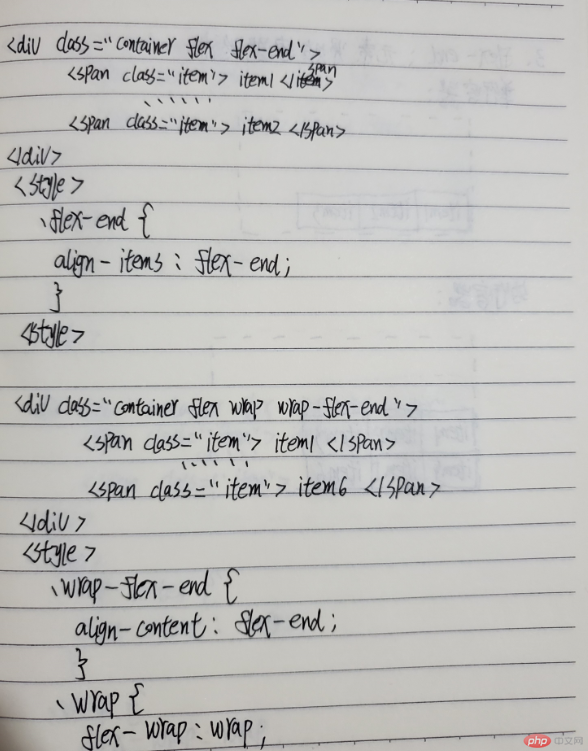 <div class="container flex flex-end">
<span class="item"> item1 </span>
......
<span class="item"> item2 </span>
</div>
<style>
.flex-end {
align-items : flex-end;
}
<style>
<div class="container flex wrap wrap-flex-end">
<span class="item"> item1 </span>
......
<span class="item"> item6 </span>
</div>
<style>
.wrap-flex-end {
align-content: flex-end;
}
.wrap {
flex-wrap : wrap;
php 中文网